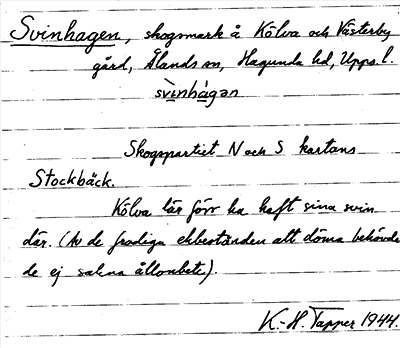 Svinhagen, skogsmark å Kölva och Västerby
gård, Ålands sn, Hagunda hd, Upps. l.
svinhàgan
Skogspartiet N och S kartans
Stockbäck.
Kölva lär förr ha haft sina svin
där. (Av de frodiga ekbestånden att döma behövde
de ej sakna ållonbete).
K.-H. Tapper 1944.